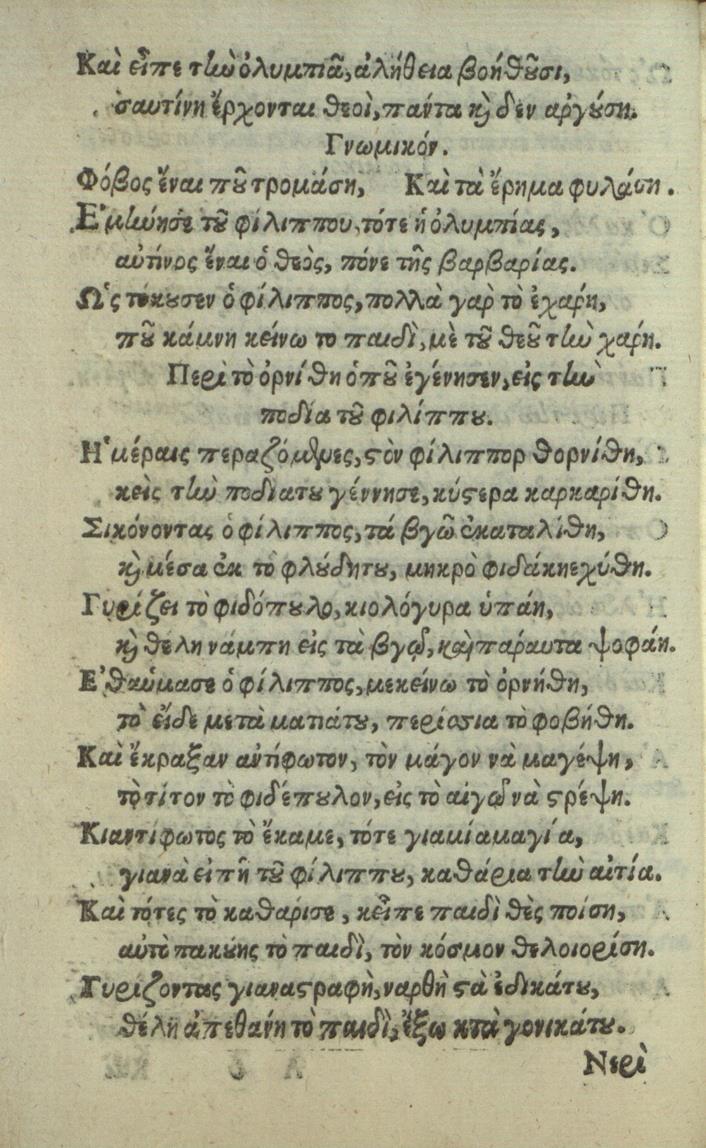 Καὶ εἶπε τὴν ὀλυμπιᾶ, ἀλήθεια βοήθȣ͂σι,
σαυτίνη ἔρχονται θεοὶ, παντα κ̀ δὲν αργȣ́ση.
Γνωμικόν.
Φόβος ἔναι πȣ͂ τρομάση, Καὶ τὰ ἔρημα φυλάση.
Εʹμίωησε τȣ͂ φίλιππου, τότε ἡ ὀλυμπίας,
αὐτίνος ἔναι ὁ θεὸς, πόνε τῆς βαρβαρίας.
Ωʽς τόκουσεν ὁ φίλιππος, πολλὰ γαρ τὸ ἐχάρη,
πȣ͂ κάμνη κείνω το παιδὶ, μὲ τȣ͂ θεȣ͂ τὴν χάρη.
Περὶ τὸ ὀρνίθη ὁπȣ͂ ἐγένησεν, εἰς τὴν
ποδία τȣ͂ φιλίππȣ.
Ηʽμέραις περαζόμενες, στὸν φίλιππορ θορνίθη,
κεὶς τὴν ποδιατȣ γέννησε, κύστερα καρκαρίθη.
Σικόνοντας ὁ φίλιππος, τά βγῶ ἐκαταλίθη,
κ̀ μέσα ἐκ το φλȣ́δητȣ, μηκρὸ φιδάκη εχύθη.
Γυρίζει τὸ φιδόπȣλο, κιολόγυρα ὑπάη,
κ̀ θέλη νάμπη εἰς τὰ βγῶ, καὶ παράυτα ψοφάη.
Εʹθαύμασε ὁ φίλιππος, μεκείνω τὸ ὀρνήθη,
τὸ εἶδε μετὰ ματιάτȣ, περίσσια τὸ φοβήθη.
Καὶ ἔκραξαν αντίφωτον, τὸν μάγον νὰ μαγέψη,
τὸ τίτον τὸ φιδέπυλον, εἰς τὸ αὐγῶ νὰ στρέψη.
Κιαντίφωτος τὸ ἔκαμε, τότε γιαμία μαγία,
γιανὰ εἰπῆ τȣ͂ φίλιππȣ, καθάρια τὴν αἰτία.
Καὶ τότες τὸ καθάρισε, κεῖπε παιδὶ θὲς ποίση,
αὐτὸ πακȣ́ης τὸ παιδὶ, τὸν κόσμον θελοιορίση.
Γυρίζοντας γιαναστραφὴ, ναρθὴ στὰ ἐδικάτȣ,
θέλη ἀπεθανη τὸ παιδὶ, ἔξω κτὰ γονικάτȣ.
Νερὶ